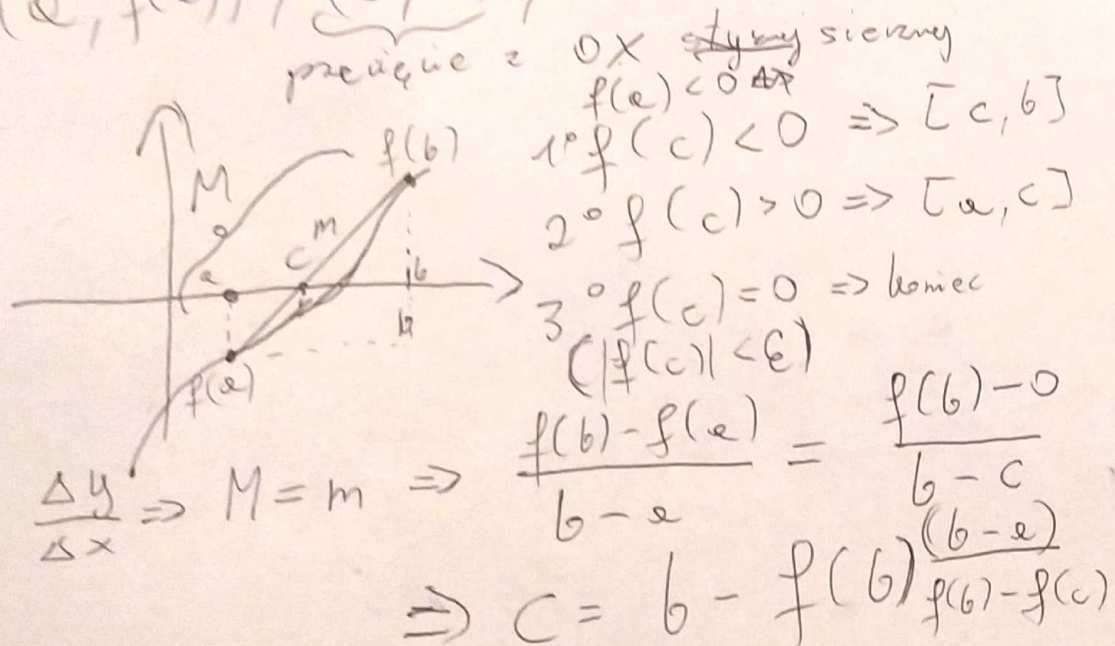 przecięcie z OX stycznej siecznej
f(a) < 0
1° f(c) < 0 => [c, b]
2° f(c) > 0 => [a, c]
3° f(c) = 0 => koniec
(|f(c)| < ε)
M
f(b)
m
a
c
b
f(a)
Δy/Δx => M = m => (f(b) - f(a))/(b - a) = (f(b) - 0)/(b - c)
=> C = b - f(b) (b - a)/(f(b) - f(c))